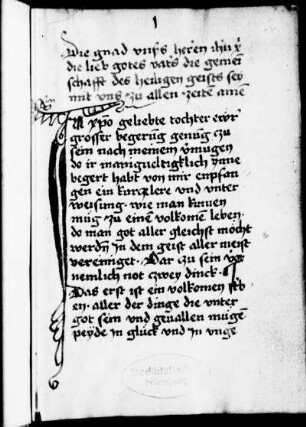 1
Die gnad unsers heren ihu x
die lieb gotes vats die gemei
schafft des heiligen geists sey
mit uns zu allen zeitē amē
In xpo geliebte tochter ewr
grosser begerūg genūg czu
sein nach meinem vmugen
do ir manigueltigklich ynne
begert habt von mir enpfan
gen ein kurczlere vnd vnter
weisung wie man kumen
mug zu einē volkomē leben
do man got aller gleichst mocht
werdn in dem geist aller meist
vereiniget. Dar zu sein vor
nemlich not czwey dinck.
Das erst ist ein volkomen sterb
en. aller der dinge die unter
got sein und geuallen mugē
peyde in gluck und in unge
Stadtbibliothek
Nürnberg